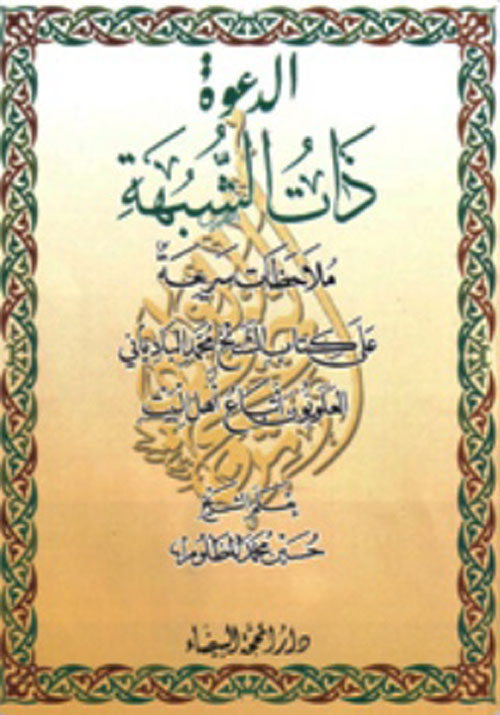 الدعوة
ذَاتُ الشُّبُهَةِ
مُلاحظات سريعة
على كتاب الشيخ محمد البادياني
العلويون أتباع أهل البيت
بقلم الشيخ
حسين محمد المظلوم
دار المحجة البيضاء